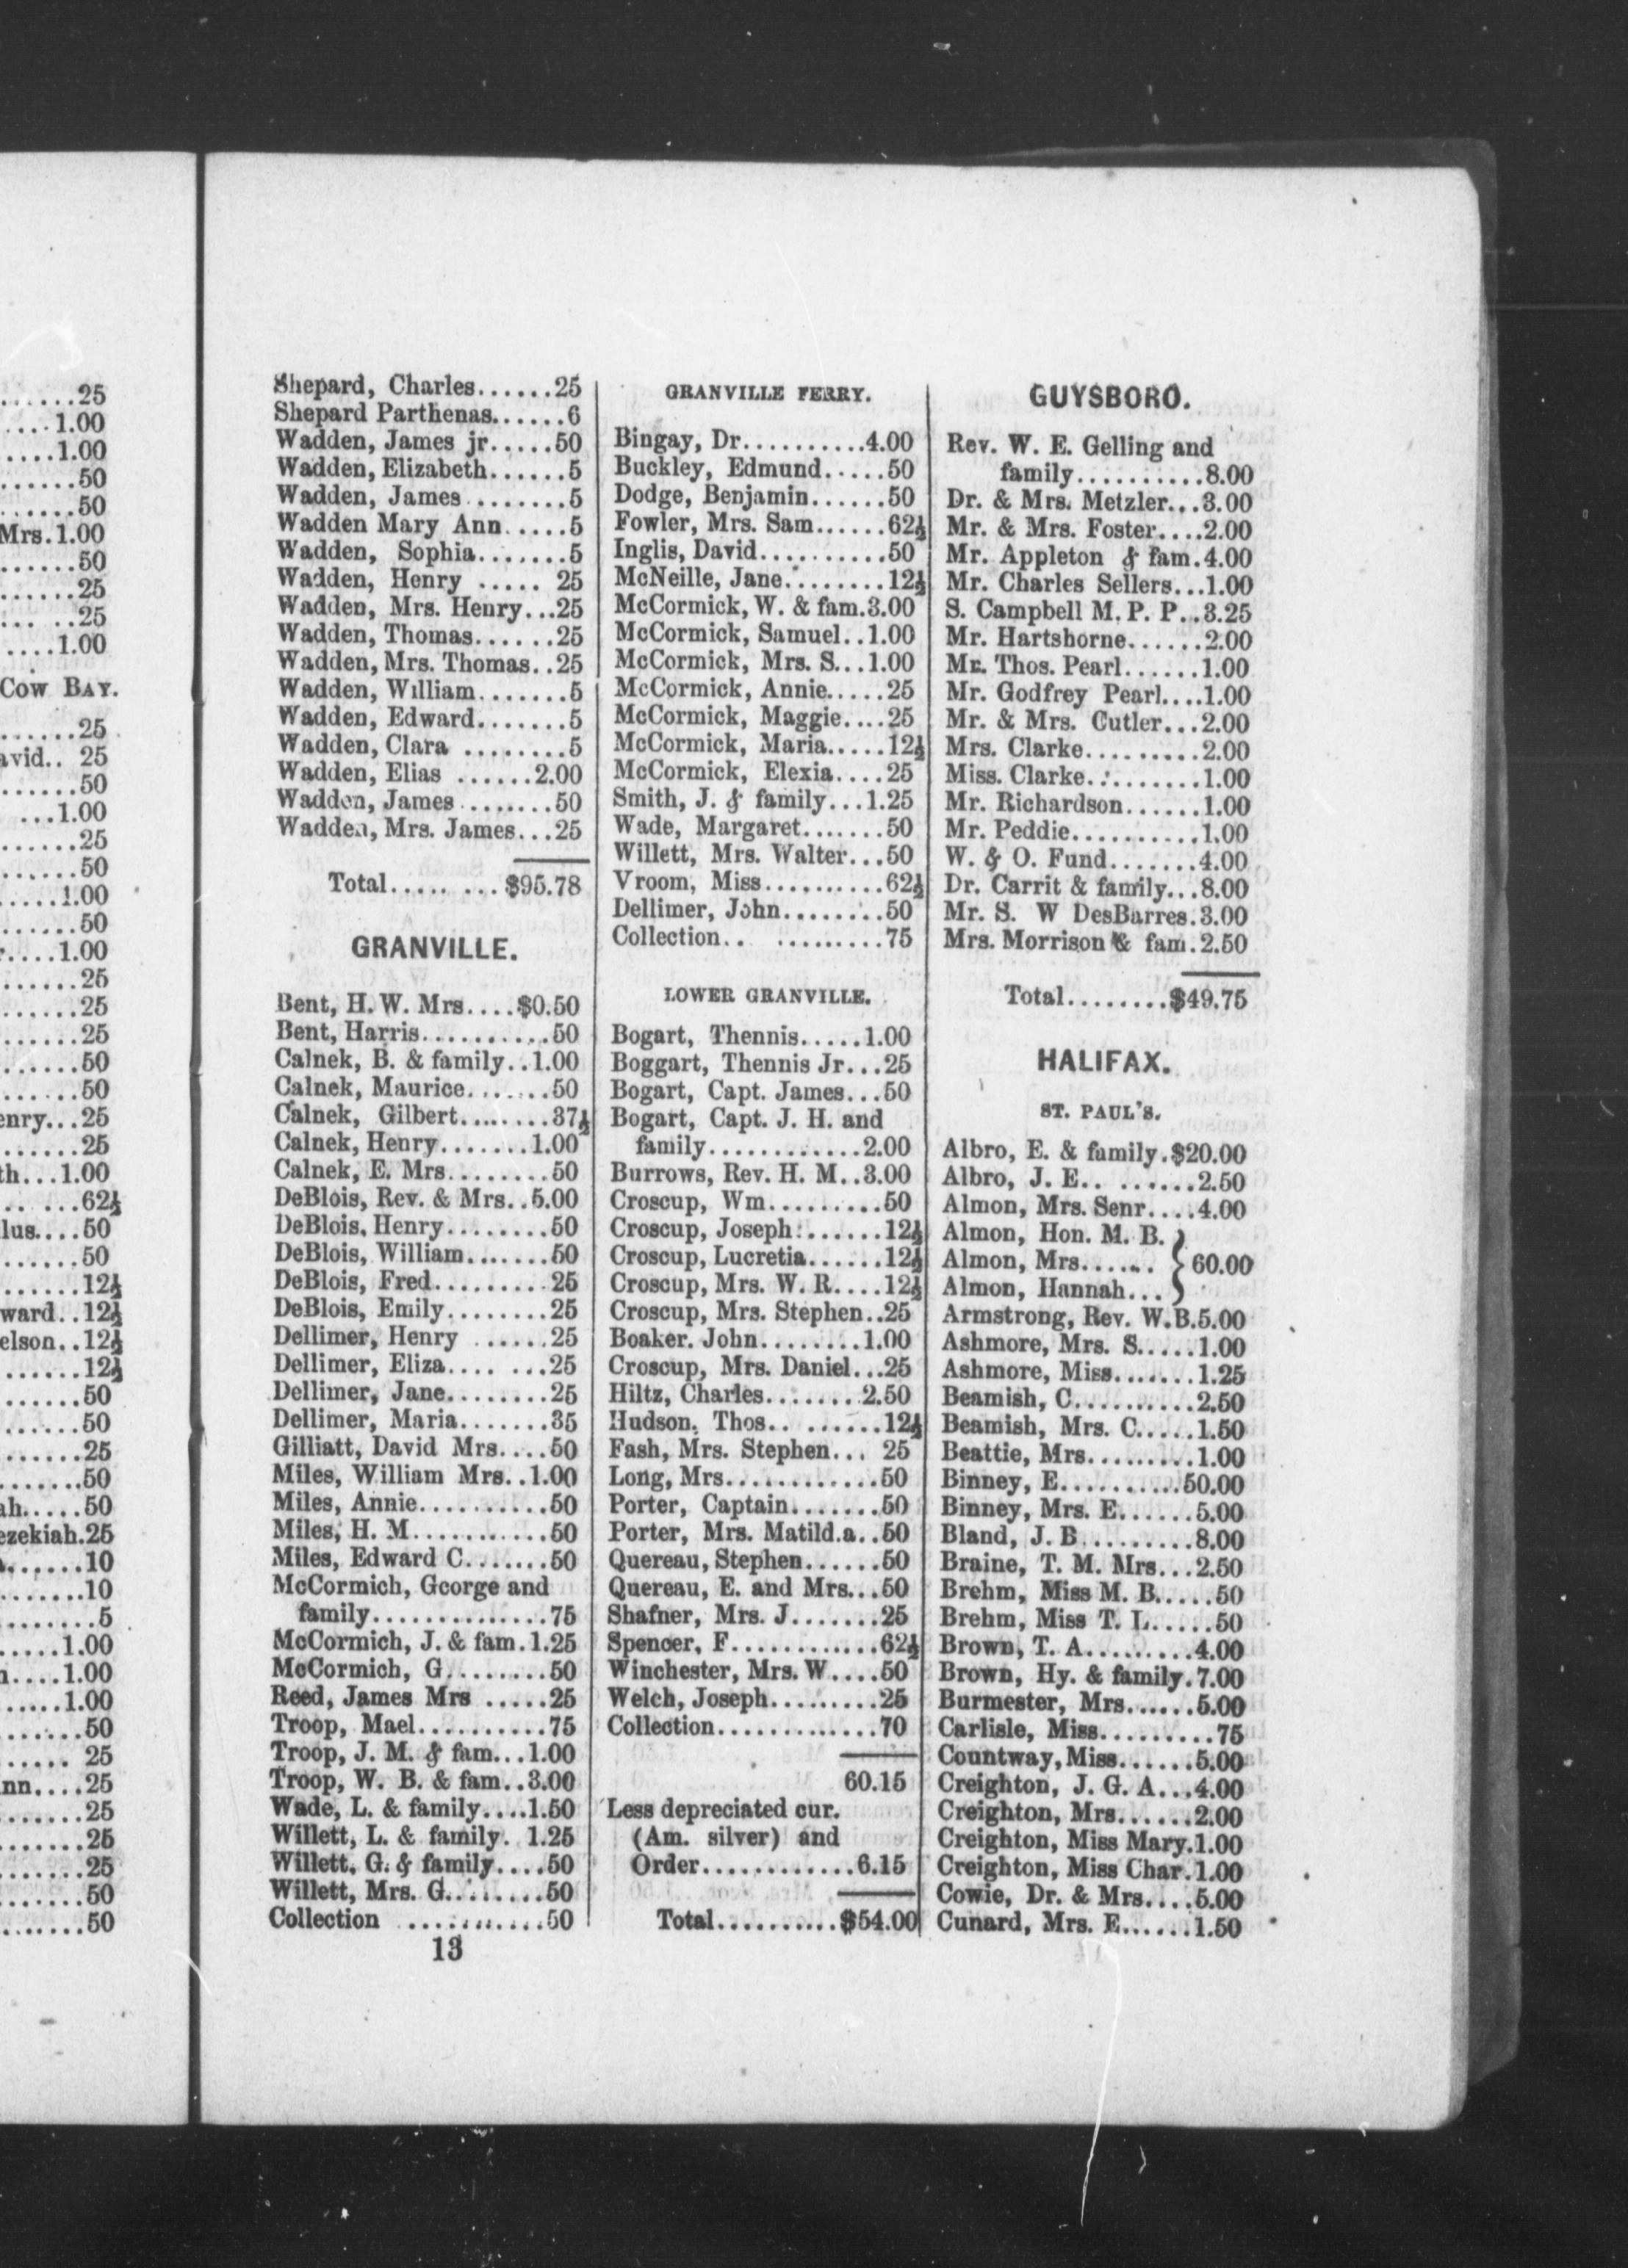 ......25
....1.00
....1.00
......50
......50
Mrs.1.00
......50
......25
... ..25
....1.00
COW BAY.
......25
avid.. 25
......50
...1.00
......25
......50
.....1.00
......50
r....1.00
......25
......25
......25
......50
......50
enry...25
......25
th...1.00
.. ...62½
lus....50
......50
......12½
ward..12½
elson..12½
......12½
......50
......50
......25
......50
ah.....50
ezekiah.25
......10
......10
........5
.....1.00
n....1.00
.....1.00
......50
...... 25
nn....25
......25
......25
......25
......50
......50
Shepard, Charles......25
Shepard Parthenas......6
Wadden, James jr.....50
Wadden, Elizabeth......5
Wadden, James ........5
Wadden Mary Ann.....5
Wadden, Sophia.......5
Wadden, Henry ..... 25
Wadden, Mrs. Henry...25
Wadden, Thomas......25
Wadden, Mrs. Thomas..25
Wadden, William.......5
Wadden, Edward.......5
Wadden, Clara ........5
Wadden, Elias ......2.00
Wadden, James........50
Wadden, Mrs. James...25
Total..... ...$95.78
GRANVILLE.
Bent, H. W. Mrs....$0.50
Bent, Harris..........50
Calnek, B. & family..1.00
Calnek, Maurice.......50
Calnek, Gilbert........37½
Calnek, Henry.......1.00
Calnek, E. Mrs........50
DeBlois, Rev. & Mrs..5.00
DeBlois, Henry........50
DeBlois, William.......50
DeBlois, Fred.........25
DeBlois, Emily........25
Dellimer, Henry ......25
Dellimer, Eliza.... ...25
Dellimer, Jane........25
Dellimer, Maria.......35
Gilliatt, David Mrs....50
Miles, William Mrs..1.00
Miles, Annie..........50
Miles, H. M...........50
Miles, Edward C.......50
McCormich, George and
family..............75
McCormich, J. & fam.1.25
McCormich, G........50
Reed, James Mrs .....25
Troop, Mael..........75
Troop, J. M. & fam...1.00
Troop, W. B. & fam..3.00
Wade, L. & family....1.50
Willett, L. & family. 1.25
Willett, G. & family....50
Willett, Mrs. G........50
Collection ...........50
13
GRANVILLE FERRY.
Bingay, Dr..........4.00
Buckley, Edmund.....50
Dodge, Benjamin......50
Fowler, Mrs. Sam......62½
Inglis, David..........50
McNeille, Jane........12½
McCormick, W. & fam.3.00
McCormick, Samuel..1.00
McCormick, Mrs. S...1.00
McCormick, Annie.....25
McCormick, Maggie....25
McCormick, Maria.....12½
McCormick, Elexia....25
Smith, J. & family...1.25
Wade, Margaret.......50
Willett, Mrs. Walter...50
Vroom, Miss..........62½
Dellimer, John........50
Collection.. .........75
LOWER GRANVILLE.
Bogart, Thennis.....1.00
Boggart, Thennis Jr...25
Bogart, Capt. James...50
Bogart, Capt. J. H. and
family............2.00
Burrows, Rev. H. M..3.00
Croscup, Wm.........50
Croscup, Joseph.......12½
Croscup, Lucretia......12½
Croscup, Mrs. W. R....12½
Croscup, Mrs. Stephen..25
Boaker. John........1.00
Croscup, Mrs. Daniel...25
Hiltz, Charles........2.50
Hudson, Thos.. ......12½
Fash, Mrs. Stephen... 25
Long, Mrs............50
Porter, Captain.......50
Porter, Mrs. Matild.a..50
Quereau, Stephen......50
Quereau, E. and Mrs...50
Shafner, Mrs. J.......25
Spencer, F............62½
Winchester, Mrs. W....50
Welch, Joseph.........25
Collection.............70
60.15
Less depreciated cur.
(Am. silver) and
Order............6.15
Total..........$54.00
GUYSBORO.
Rev. W. E. Gelling and
family..........8.00
Dr. & Mrs. Metzler...3.00
Mr. & Mrs. Foster....2.00
Mr. Appleton & fam.4.00
Mr. Charles Sellers...1.00
S. Campbell M. P. P..3.25
Mr. Hartshorne......2.00
Mr. Thos. Pearl......1.00
Mr. Godfrey Pearl....1.00
Mr. & Mrs. Cutler...2.00
Mrs. Clarke..........2.00
Miss. Clarke.........1.00
Mr. Richardson......1.00
Mr. Peddie..........1.00
W. & O. Fund.......4.00
Dr. Carrit & family...8.00
Mr. S. W DesBarres.3.00
Mrs. Morrison & fam.2.50
Total........$49.75
HALIFAX.
ST. PAUL'S.
Albro, E. & family.$20.00
Albro, J. E.. ......2.50
Almon, Mrs. Senr....4.00
Almon, Hon. M. B.
Almon, Mrs...... } 60.00
Almon, Hannah...
Armstrong, Rev. W.B.5.00
Ashmore, Mrs. S.....1.00
Ashmore, Miss.......1.25
Beamish, C..........2.50
Beamish, Mrs. C.....1.50
Beattie, Mrs.........1.00
Binney, E..........50.00
Binney, Mrs. E......5.00
Bland, J. B.........8.00
Braine, T. M. Mrs...2.50
Brehm, Miss M. B.....50
Brehm, Miss T. L.....50
Brown, T. A.........4.00
Brown, Hy. & family.7.00
Burmester, Mrs......5.00
Carlisle, Miss.........75
Countway, Miss......5.00
Creighton, J. G. A...4.00
Creighton, Mrs......2.00
Creighton, Miss Mary.1.00
Creighton, Miss Char.1.00
Cowie, Dr. & Mrs....5.00
Cunard, Mrs. E......1.50